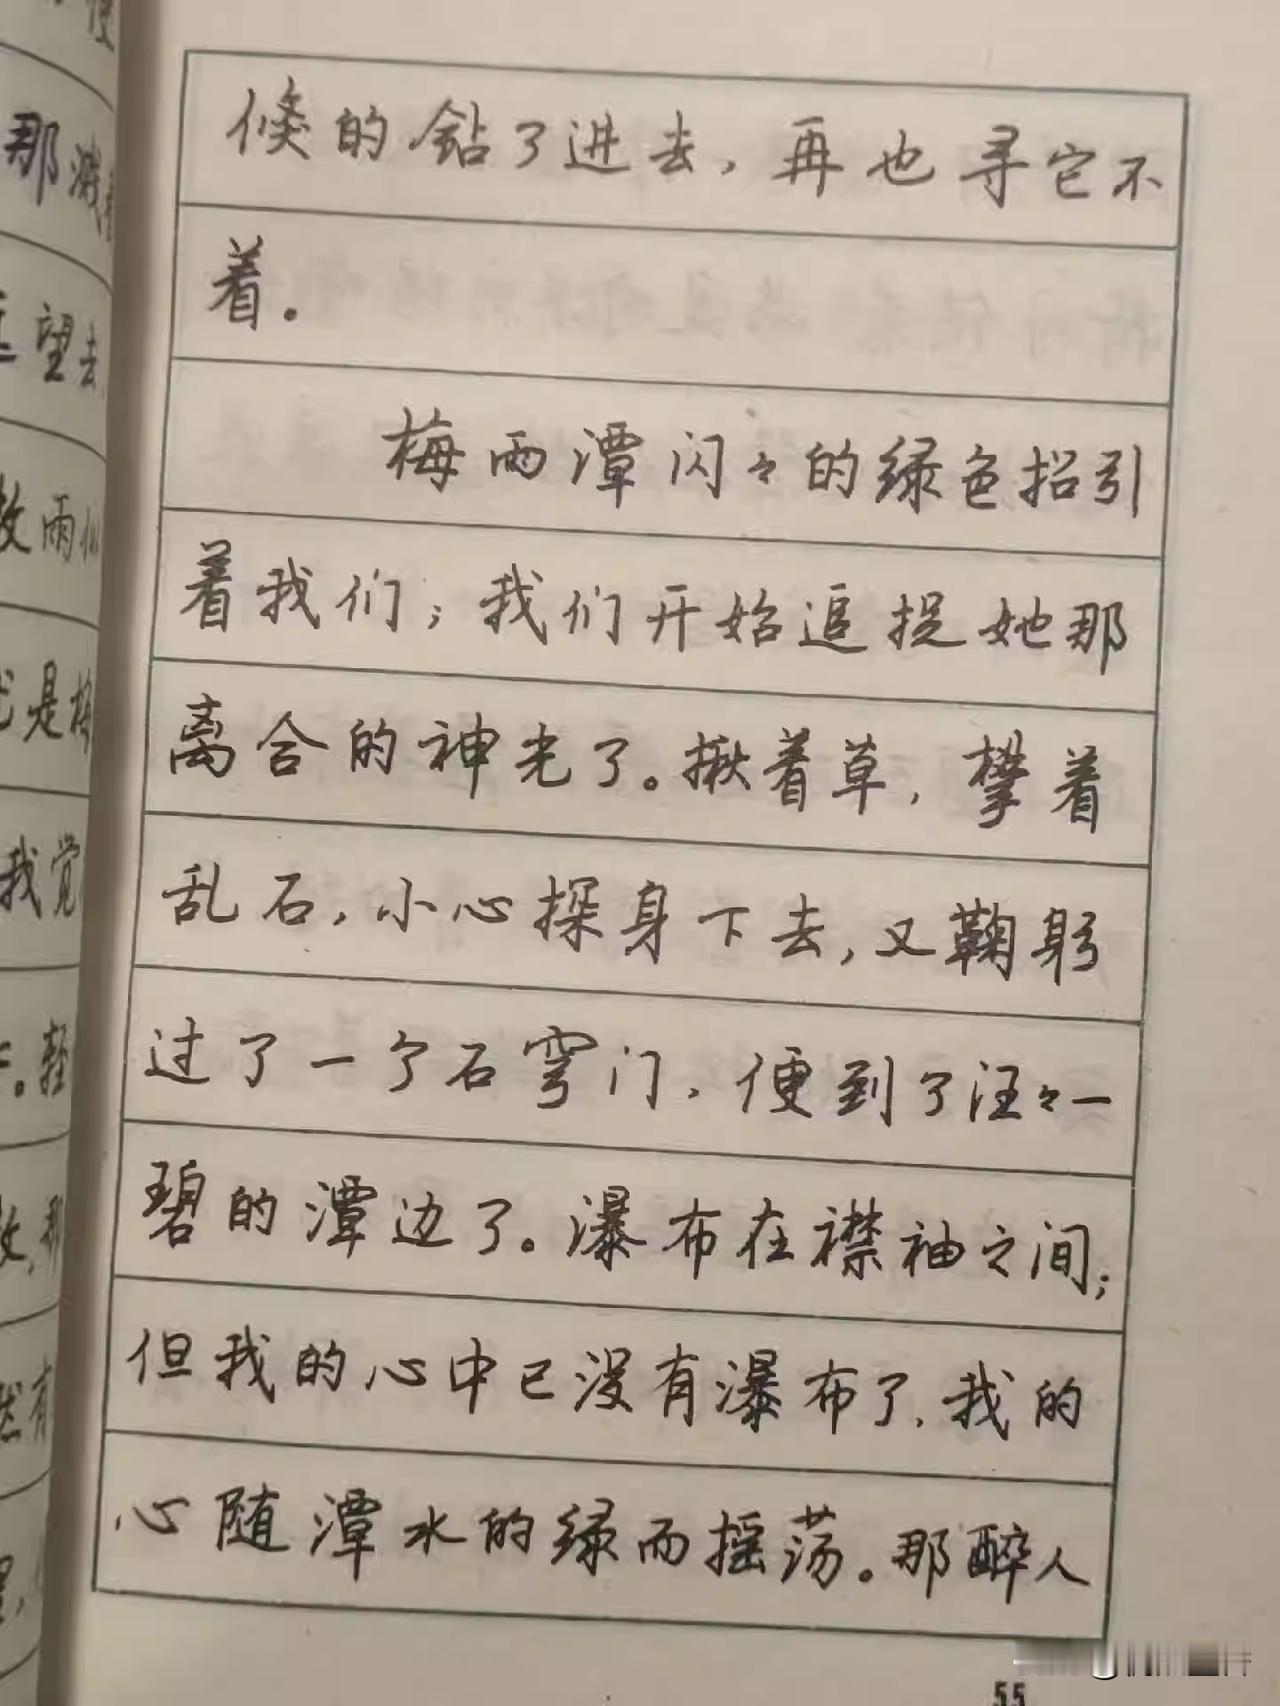 那溅
望去
雨
是梅
我觉
。轻
那
然有
倏的钻了进去，再也寻它不
着.
梅雨潭闪々的绿色招引
着我们；我们开始追捉她那
离合的神光了。揪着草，攀着
乱石，小心探身下去，又鞠躬
过了一个石穹门，便到了汪々一
碧的潭边了。瀑布在襟袖之间；
但我的心中已没有瀑布了，我的
心随潭水的绿而摇荡。那醉人
55